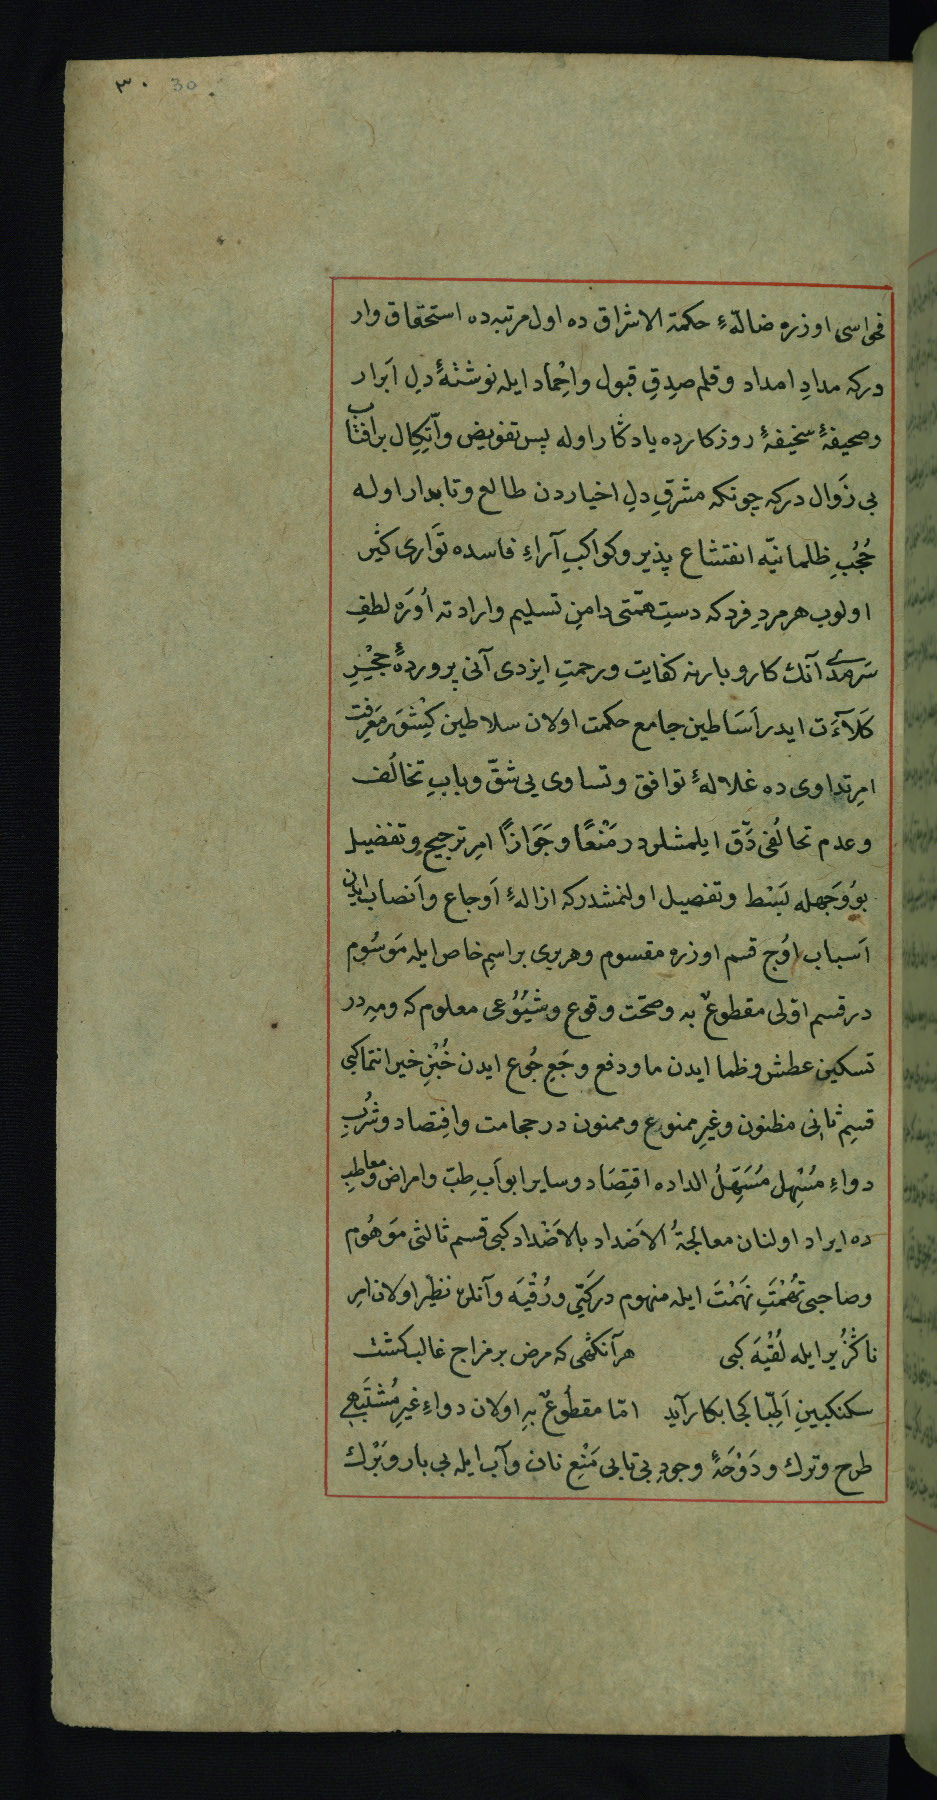 ٣٠ 30
فحواسی اوزره ضالّهٔ حکمة الاشراق ده اول مرتبه ده استحقاق وار
درکه مدادِ امداد و قلم صِدقِ قبول و احْماد ایله نوشتهٔ دلِ اَبرار
و صحیفهٔ سخیفهٔ روزکارده یادکار اوله پس تفویض و اتّکال بر افتاب
بی زَوال درکه چونکه مشرقِ دلِ اخیاردن طالع و تابدار اوله
حُجُبِ ظلمانیّه انقشاع پذیر و کواکبِ آراءِ فاسده تَواری کیر
اولوب هر مردِ فرد که دستِ همّتی دامنِ تسلیم و ارادته اُورَه لطفِ
سَرمدی آنك کار و بارنه کفایت و رحمتِ ایزدی آنی پروردهٔ حِجْرِ
کَلآءَت ایدر اَسَاطین جامع حکمت اولان سلاطین کِشْوَر مَعرِفت
امرِ تداوی ده غلالهٔ توافق و تساوی یی شقّ و بابِ تخالُف
و عدم تخالُفی دَقّ ایلمشلردر مَنْعًا و جَوَازًا امرِ ترجیح و تفضیل
بو وَجهله بَسْط و تفصیل اولنمشدرکه ازالهٔ اَوجاع و اَنصاب ایدن
اَسباب اوُج قسم اوزره مقسوم و هر بری بر اسمِ خاص ایله مَوسُوم
در قسم اوّلی مقطوعٌ به و صحّت وقوع و شُیُوُعی معلوم که ومِه در
تسکین عطش و ظما ایدن ما و دفع وجَعِ جُوع ایدن خُبْزِ خیر انتما کبی
قسمِ ثانی مظنون و غیرِ ممنوع و ممنون در حجامت و افِتصاد و شُربِ
دواءِ مُسْهِل مُسَهِّلُ الداده اقتِصَاد و سایر ابوابِ طبّ و امراض و معاطبِ
ده ایراد اولنان معالجةُ الاَضداد بالاَضْداد کبی قسم ثالثی مَوهُوم
و صاحبی تُهْمَتِ نَهْمَتَ ایله منهوم در کَیّ و رُقْیَه و آنلره نظیر اولان امرِ
ناکُزیر ایله لُقْیَه کبی هر آنکَهی که مرض بر مزاج غالب کشت
سکنکبینِ اَطِبّا کجا بکار آید امّا مقطوعٌ بهِ اولان دواءِ غیرِ مُشتَبَهی
طرح و ترك و دَوْحَهٔ وجودِ بی تابی مَنْعِ نان و آب ایله بی بار و بَرْك